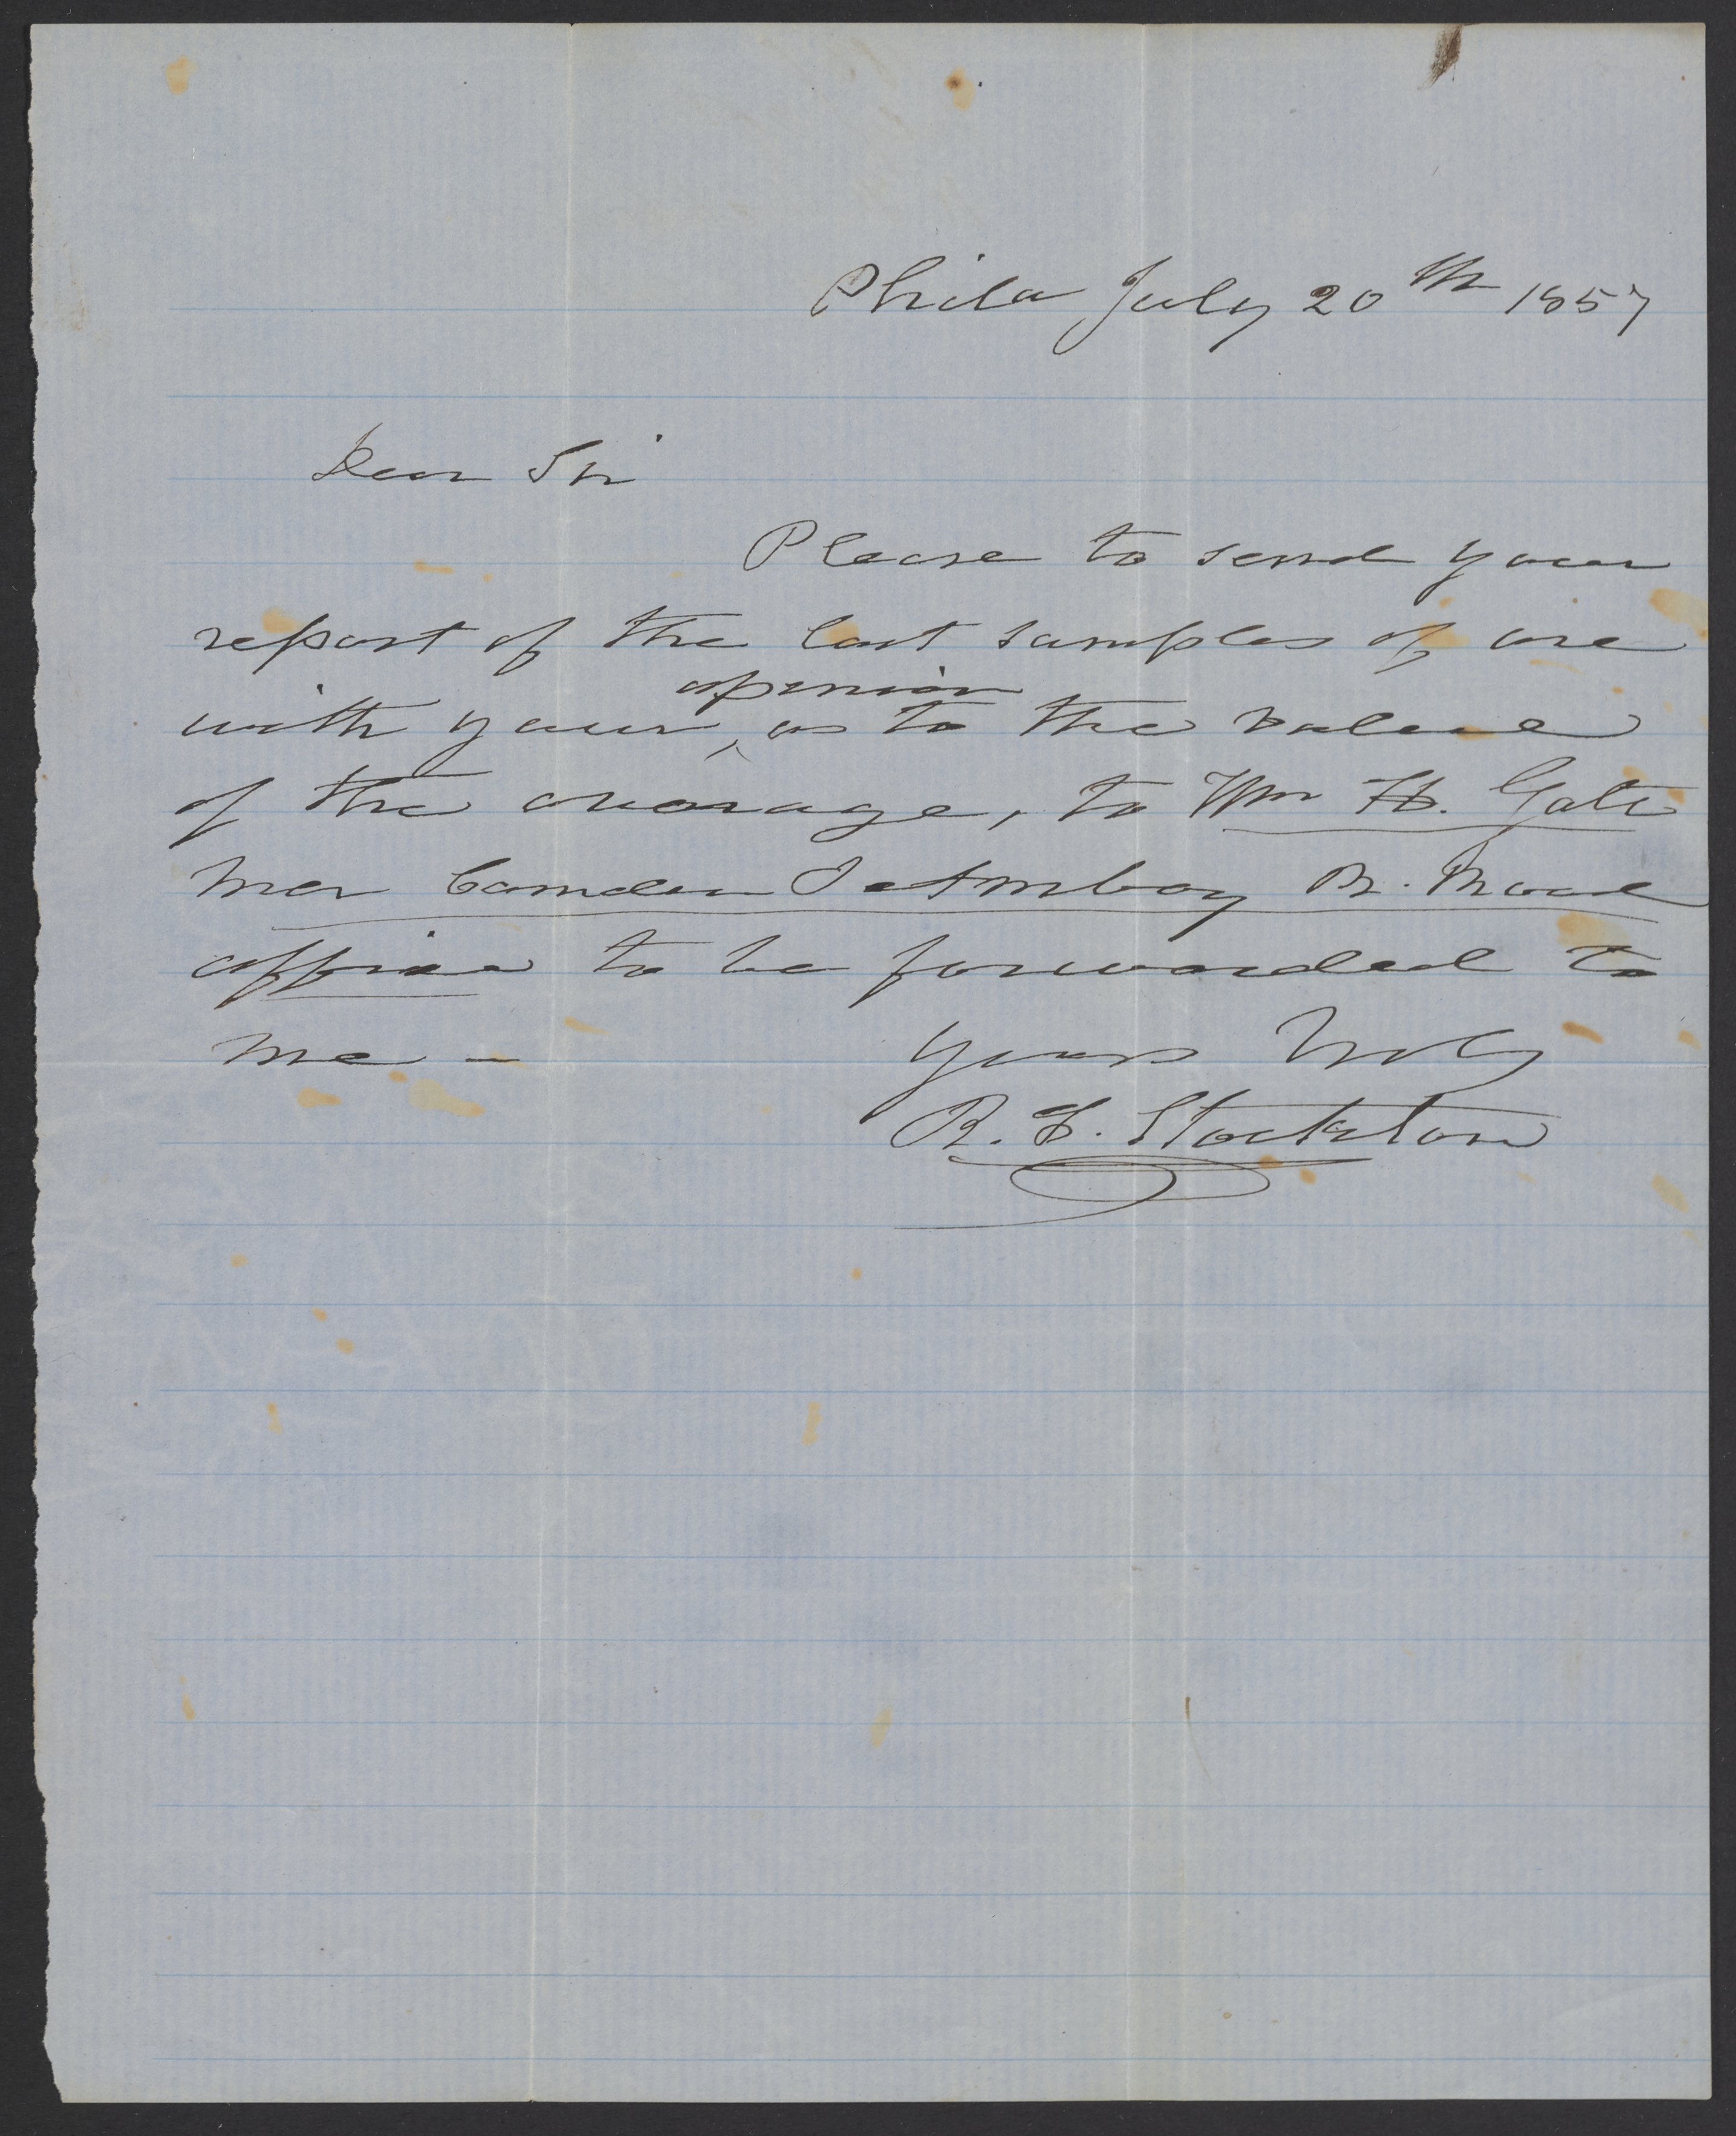 Phila July 20th 1857
Dear Sir
Please to send your
report of the last samples of ore
opinion
with your ^ as to the value
of the average, to Wm H. Gatz
mer Camden & Amboy R. Road
office to be forwarded to
me –
Yours Trly
R. F. Stockton